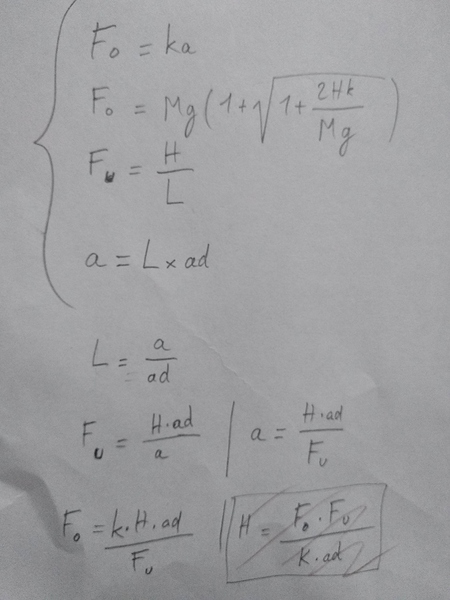 F₀ = ka
F₀ = Mg(1+√(1+2Hk/Mg))
Fᵤ = H/L
a = L × ad
L = a/ad
Fᵤ = H·ad/a | a = H·ad/Fᵤ
F₀ = k·H·ad/Fᵤ || H = F₀·Fᵤ/k·ad